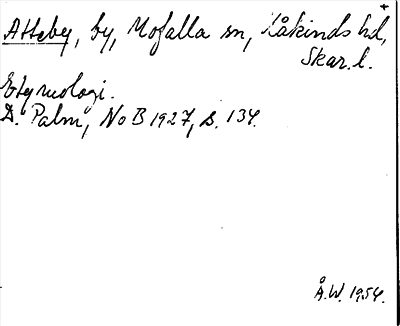 +
Atteby, by, Mofalla sn, Kåkinds hd,
Skar. l.
Etymologi.
D. Palm, NoB 1927, s. 134.
Å.W. 1954.